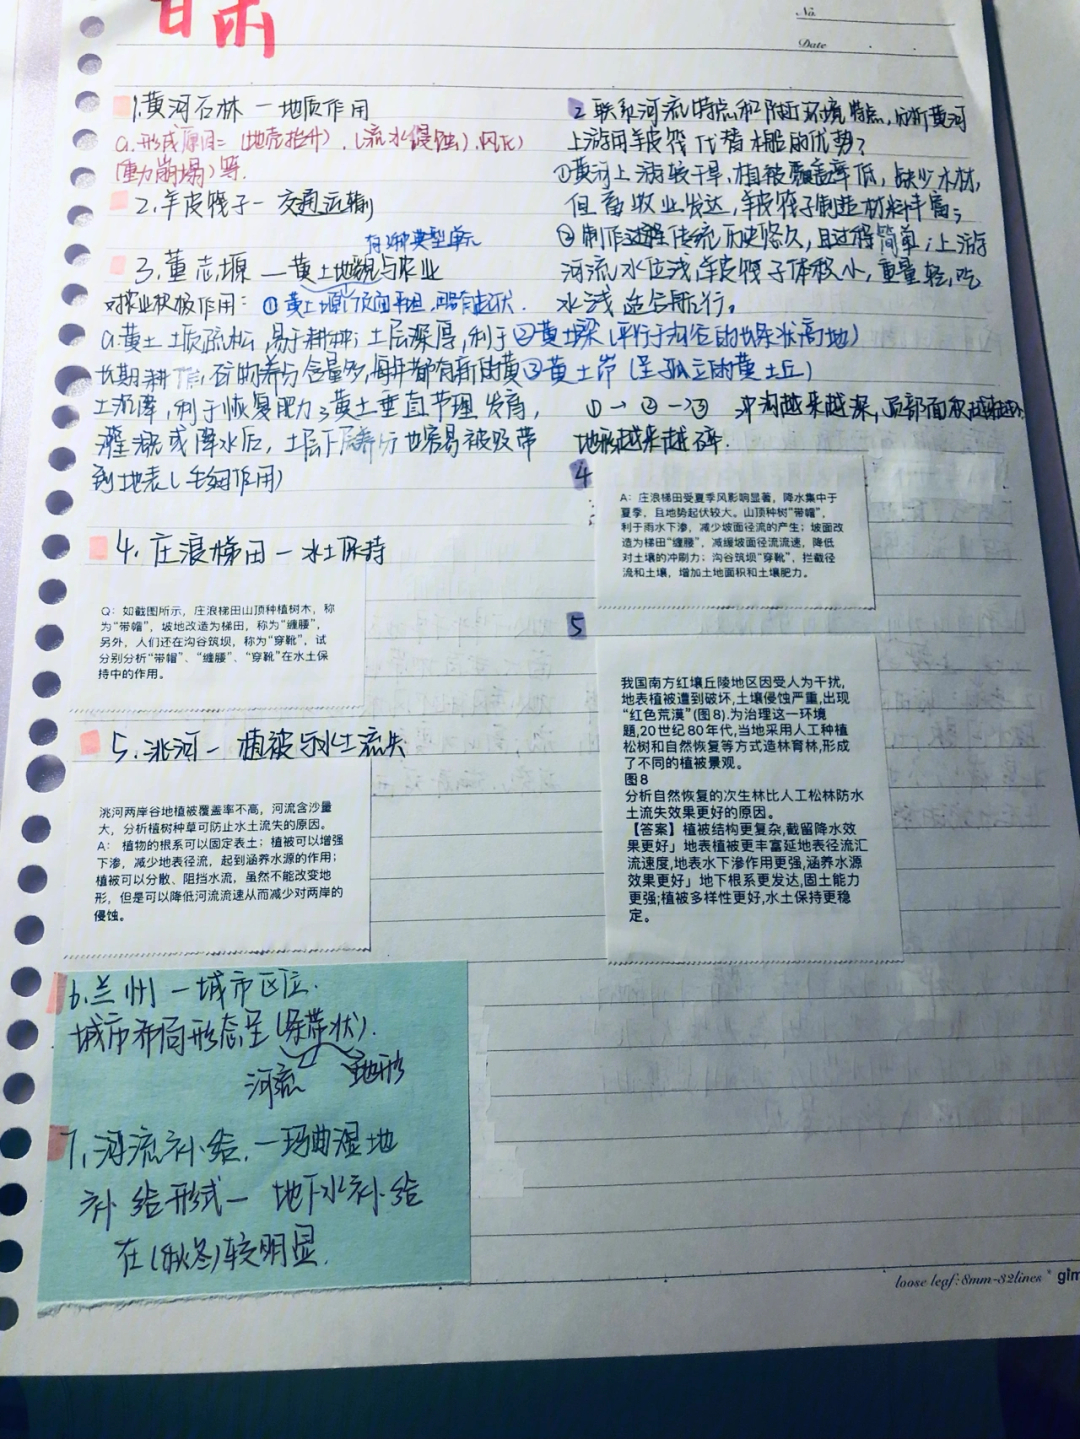 甘肃
No.
Date
1.黄河石林－地质作用
a.形成原因=(地壳抬升).(流水侵蚀).风化)
(重力崩塌)等.
2.羊皮筏子－交通运输
有三种典型单元
3.董志塬－黄土地貌与农业
对农业积极作用:
①黄土塬(顶面平坦,周有起伏.
a.黄土土质疏松,易于耕种;土层深厚,利于
②黄土梁(平行于沟谷的长条状高地)
长期耕作;矿物养分含量多,每年都有新的黄
③黄土峁(呈孤立的黄土丘)
土沉降,利于恢复肥力;黄土垂直节理发育,
灌溉或降水后,土层下层养分也容易被吸带
到地表(毛细作用)
①→②→③ 冲沟越来越深,顶部面积越来越小
地形越来越碎.
4.庄浪梯田－水土保持
Q：如截图所示，庄浪梯田山顶种植树木，称
为“带帽”，坡地改造为梯田，称为“缠腰”，
另外，人们还在沟谷筑坝，称为“穿靴”，试
分别分析“带帽”、“缠腰”、“穿靴”在水土保
持中的作用。
5.洮河－植被与水土流失
洮河两岸谷地植被覆盖率不高，河流含沙量
大，分析植树种草可防止水土流失的原因。
A：植物的根系可以固定表土；植被可以增强
下渗，减少地表径流，起到涵养水源的作用；
植被可以分散、阻挡水流，虽然不能改变地
形，但是可以降低河流流速从而减少对两岸的
侵蚀。
6.兰州－城市区位.
城市布局形态呈(条带状).
河流 地形
7.河流补给.－玛曲湿地
补给形式－地下水补给
在(秋冬)较明显.
2.联系河流特点和附近环境特点,分析黄河
上游用羊皮筏代替木船的优势?
①黄河上游较干旱,植被覆盖率低,缺少木材,
但畜牧业发达,羊皮筏子制造材料丰富;
②制作过程传统历史悠久,且过程简单;上游
河流水位浅,羊皮筏子体积小,重量轻,吃
水浅适合航行。
4
A：庄浪梯田受夏季风影响显著，降水集中于
夏季，且地势起伏较大。山顶种树“带帽”，
利于雨水下渗，减少坡面径流的产生；坡面改
造为梯田“缠腰”，减缓坡面径流流速，降低
对土壤的冲刷力；沟谷筑坝“穿靴”，拦截径
流和土壤，增加土地面积和土壤肥力。
5
我国南方红壤丘陵地区因受人为干扰,
地表植被遭到破坏,土壤侵蚀严重,出现
“红色荒漠”(图8).为治理这一环境
题,20世纪80年代,当地采用人工种植
松树和自然恢复等方式造林育林,形成
了不同的植被景观。
图8
分析自然恢复的次生林比人工松林防水
土流失效果更好的原因。
【答案】植被结构更复杂,截留降水效
果更好」地表植被更丰富延地表径流汇
流速度,地表水下渗作用更强,涵养水源
效果更好」地下根系更发达,固土能力
更强;植被多样性更好,水土保持更稳
定。
loose leaf:8mm-32lines